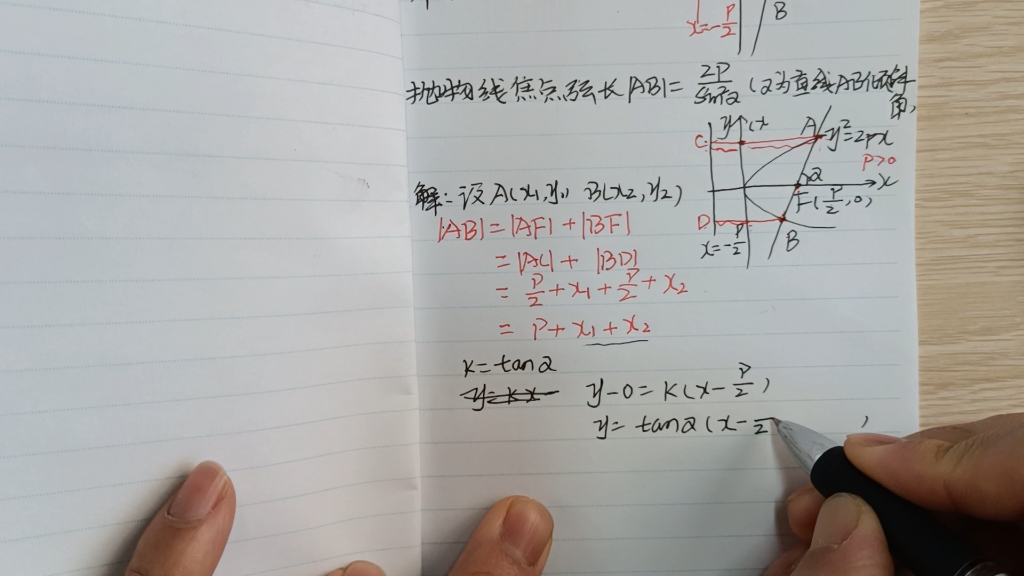 x=-P/2
B
抛物线焦点弦长|AB|=2P/sin²α (α为直线AB倾斜角)
y
C
A
y²=2px
P>0
α
x
F(P/2,0)
D
x=-P/2
B
解:设A(x₁,y₁) B(x₂,y₂)
|AB|=|AF|+|BF|
=|AC|+|BD|
=P/2+x₁+P/2+x₂
=P+x₁+x₂
K=tanα
y=kx
y-0=K(x-P/2)
y=tanα(x-/2 )